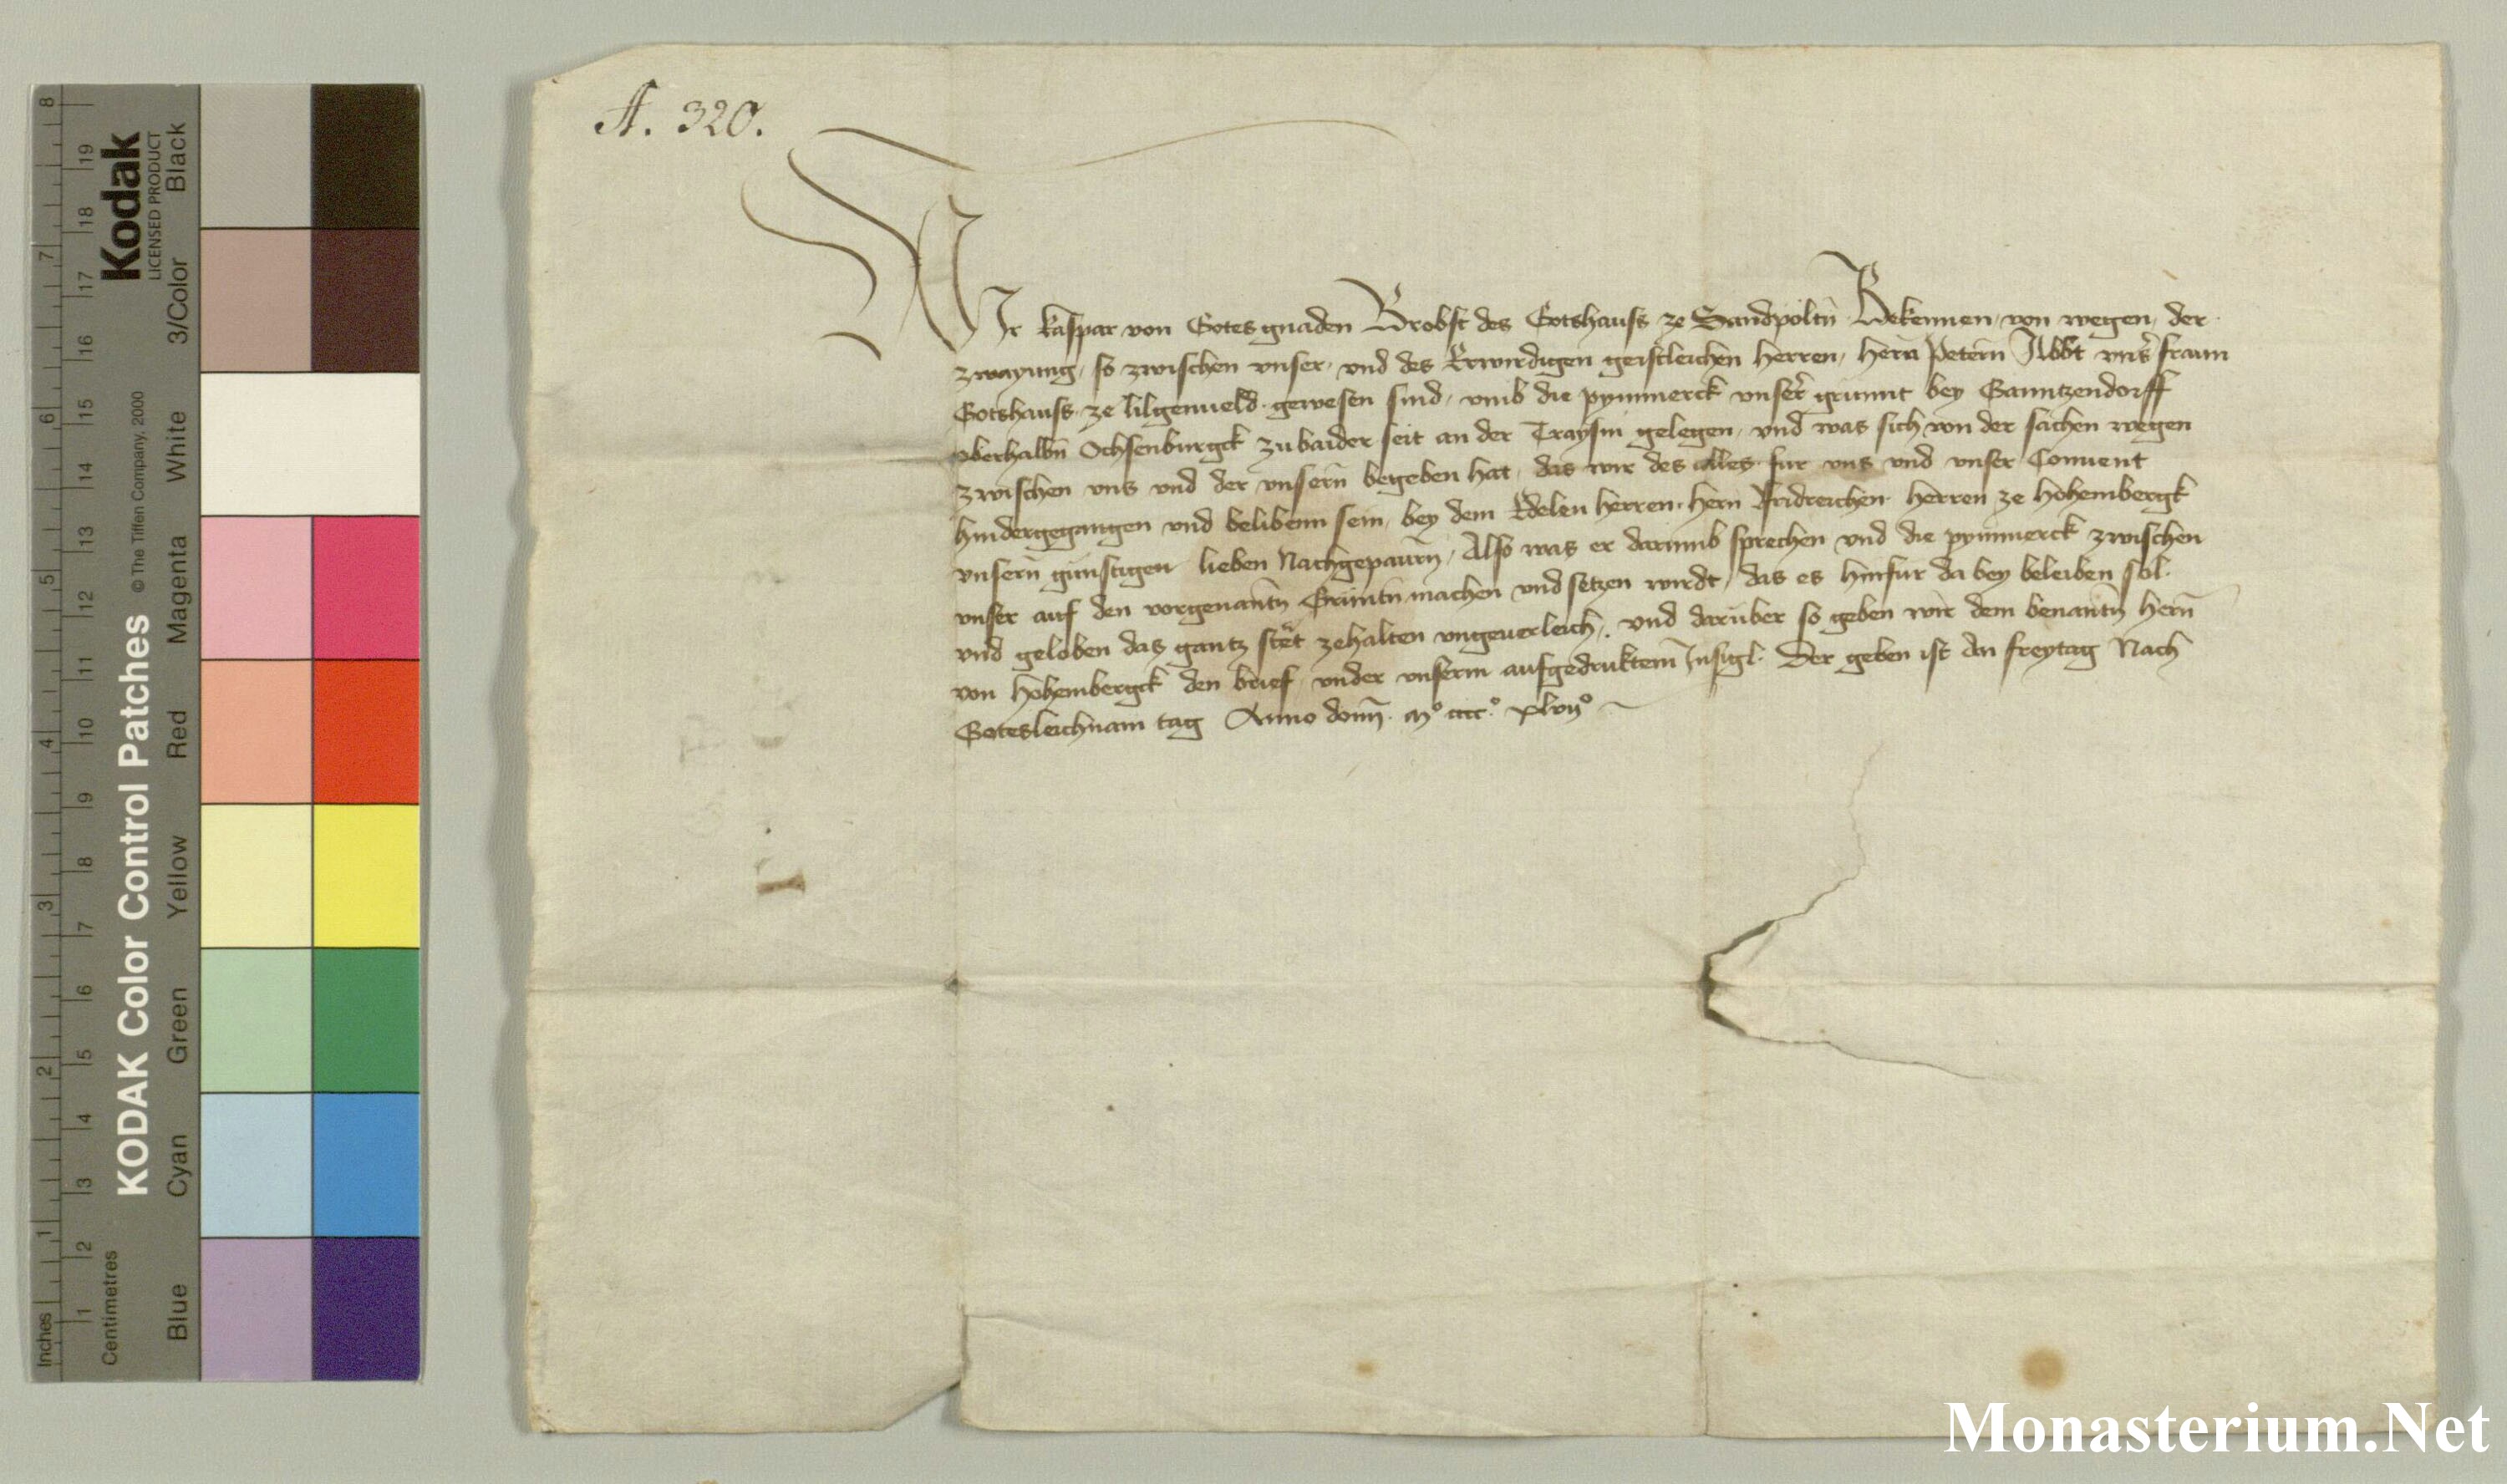 A. 320.
WIr Kaspar von Gotes gnaden Brobst des Gotshauss ze Sandpöltn̄ Bekennen von wegen der
zwayung, so zwischen vnser, vnd des Erwirdigen geistleichen herren, hern̄ Petern̄ Abbt vns̄ fraun
Gotshauss ze lilgenueld gewesen sind, vmb die pymmerck vnser̄ grunnt bey Ganntzendorff
oberhalbn̄ Ochsenburgck zu baider seit an der Traysm gelegen, vnd was sich von der sachen wegen
zwischen vns vnd der vnsern̄ begeben hat, das wir des alles fur vns vnd vnser Conuent
hindergegangen vnd belibenn sein, bey dem Edelen herren, hern Fridreichen herren ze Hohembergk
vnsern̄ günstigen lieben Nachgepaurn̄, Also was er darumb sprechen vnd die pymmerck zwischen
vnser auf den vorgenantn̄ Grüntn̄ machen vnd setzen wirdt, das es hinfur da bey beleiben sol.
vnd geloben das gantz stët zehalten vngeuerleich, vnd darüber so geben wir dem benantn̄ hern̄
von Hohembergck den brief vnder vnserm aufgedruktem̄ Insigl. Der geben ist An freytag Nach
Gotesleichnam tag Anno domī. mº cccc.º xlvijº
KODAK Color Control Patches © The Tiffen Company, 2000
Kodak
LICENSED PRODUCT
Blue Cyan Green Yellow Red Magenta White 3/Color Black
Inches 1 2 3 4 5 6 7 8
Centimetres 1 2 3 4 5 6 7 8 9 10 11 12 13 14 15 16 17 18 19
Monasterium.Net